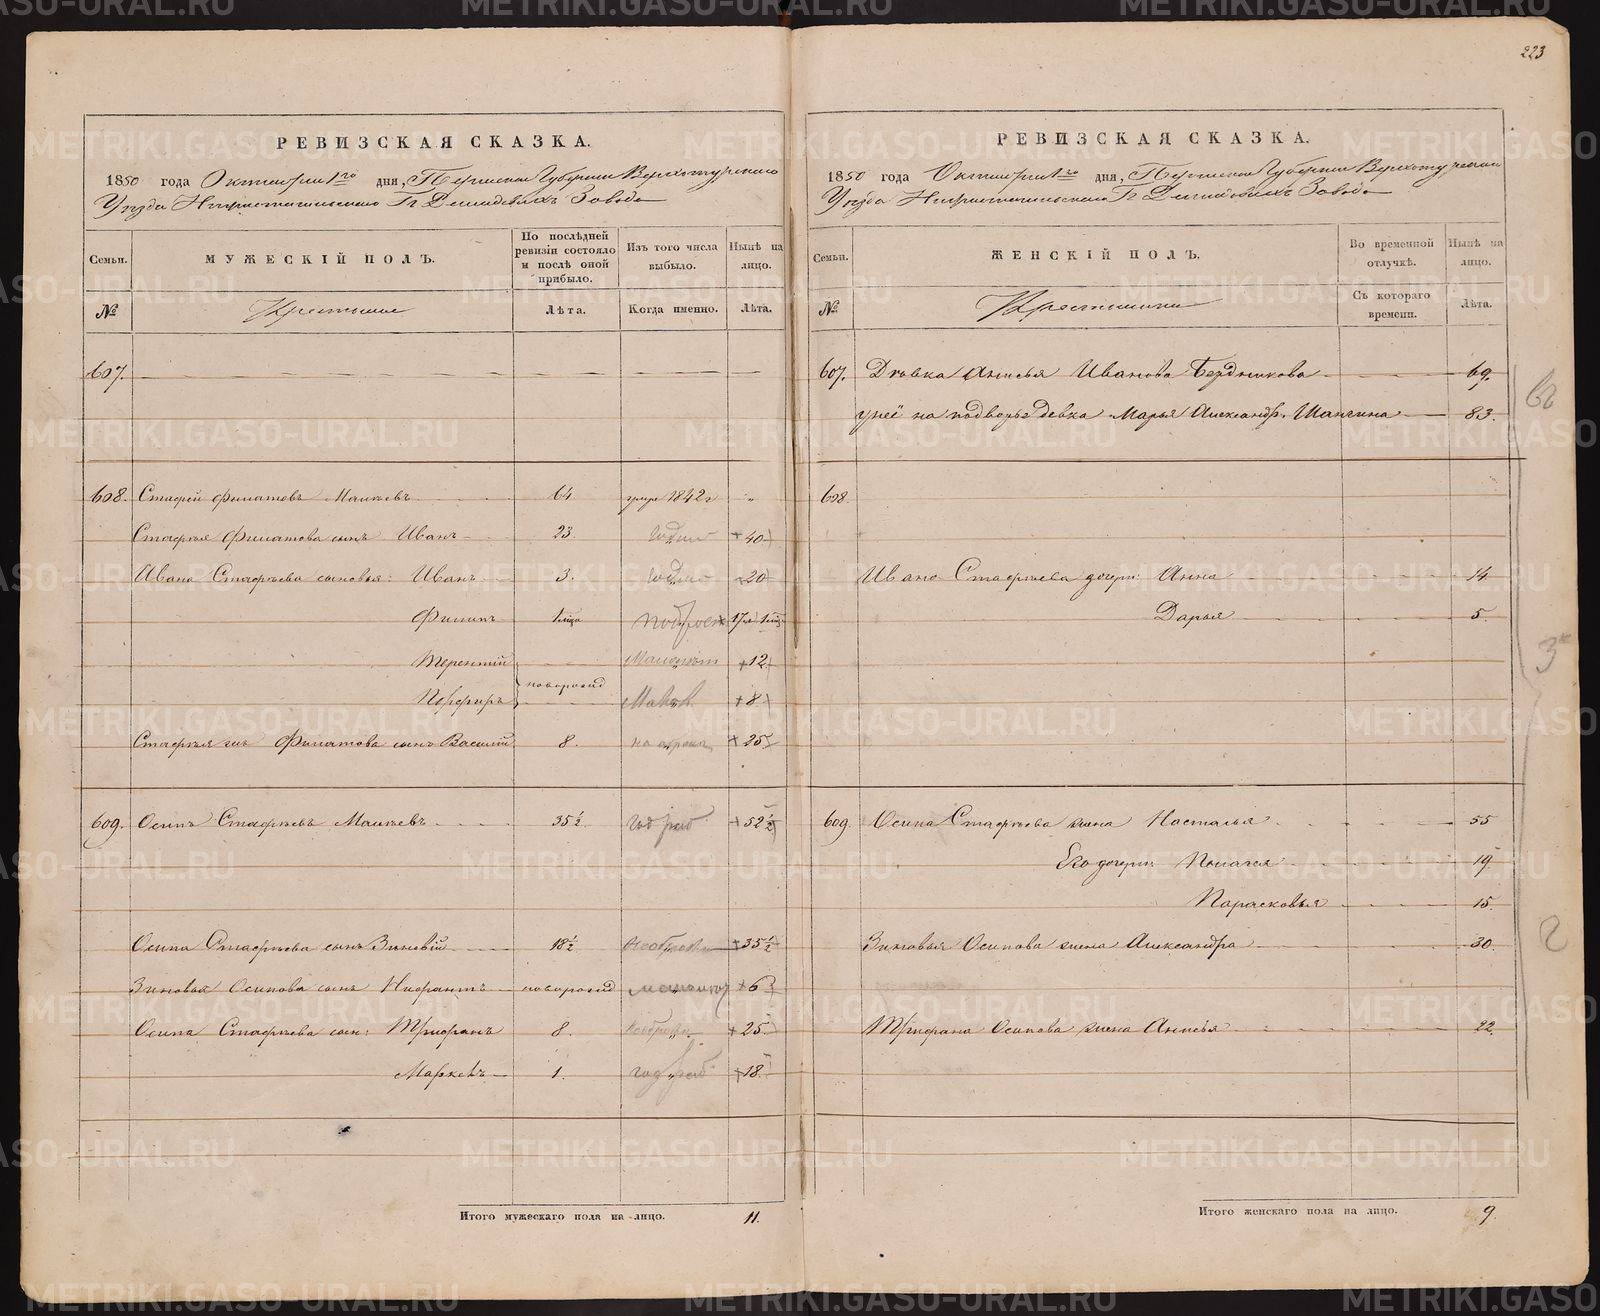 223
РЕВИЗСКАЯ СКАЗКА.
1850 года Октября 1го дня, Пермской Губернии Верхотурскаго
Уезда Нижнетагильскаго Гг Демидовыхъ Завода
Семьи.
МУЖЕСКІЙ ПОЛЪ.
По послѣдней ревизіи состояло и послѣ оной прибыло.
Изъ того числа выбыло.
Нынѣ на лицо.
№
Крестьяне
Лѣта.
Когда именно.
Лѣта.
607.
608. Стафей Филатовъ Мокеевъ 64 умре 1842 г „
Стафея Филатова сынъ Иванъ 23. +40
Ивана Стафеева сыновья: Иванъ 3. 20
Филипъ 1 мца 17 л 1 мц
Терентій +12
новорожд
Порфиръ +8
Стафея же Филатова сынъ Василій 8. +25
609. Осипъ Стафеевъ 35½ +52½
Осипа Стафеева сынъ Зиновій 18½ +35½
Зиновья Осипова сынъ новорожд +6
Осипа Стафеева сын: Трифанъ 8. +25
1. +18
Итого мужескаго пола на лицо. 11.
РЕВИЗСКАЯ СКАЗКА.
1850 года Октября 1го дня, Пермской Губернии Верхотурскаго
Уезда Нижнетагильскаго Гг Демидовыхъ Завода
Семьи.
ЖЕНСКІЙ ПОЛЪ.
Во временной отлучкѣ.
Нынѣ на лицо.
№
Крестьянки
Съ котораго времени.
Лѣта.
607. Дѣвка Анисья Иванова Бердникова 69.
у неё на подворье девка Марья Александр. Шапгина 83.
608.
Ивана Стафеева дочери: Анна 14
Дарья 5.
3
609. Осипа Стафеева жена Насталья 55
Его дочери: Пелагея 19
Парасковья 15.
Зиновья Осипова жена Александра 30.
2
Трифана Осипова жена Анисья 22.
Итого женскаго пола на лицо. 9.
METRIKI.GASO-URAL.RU